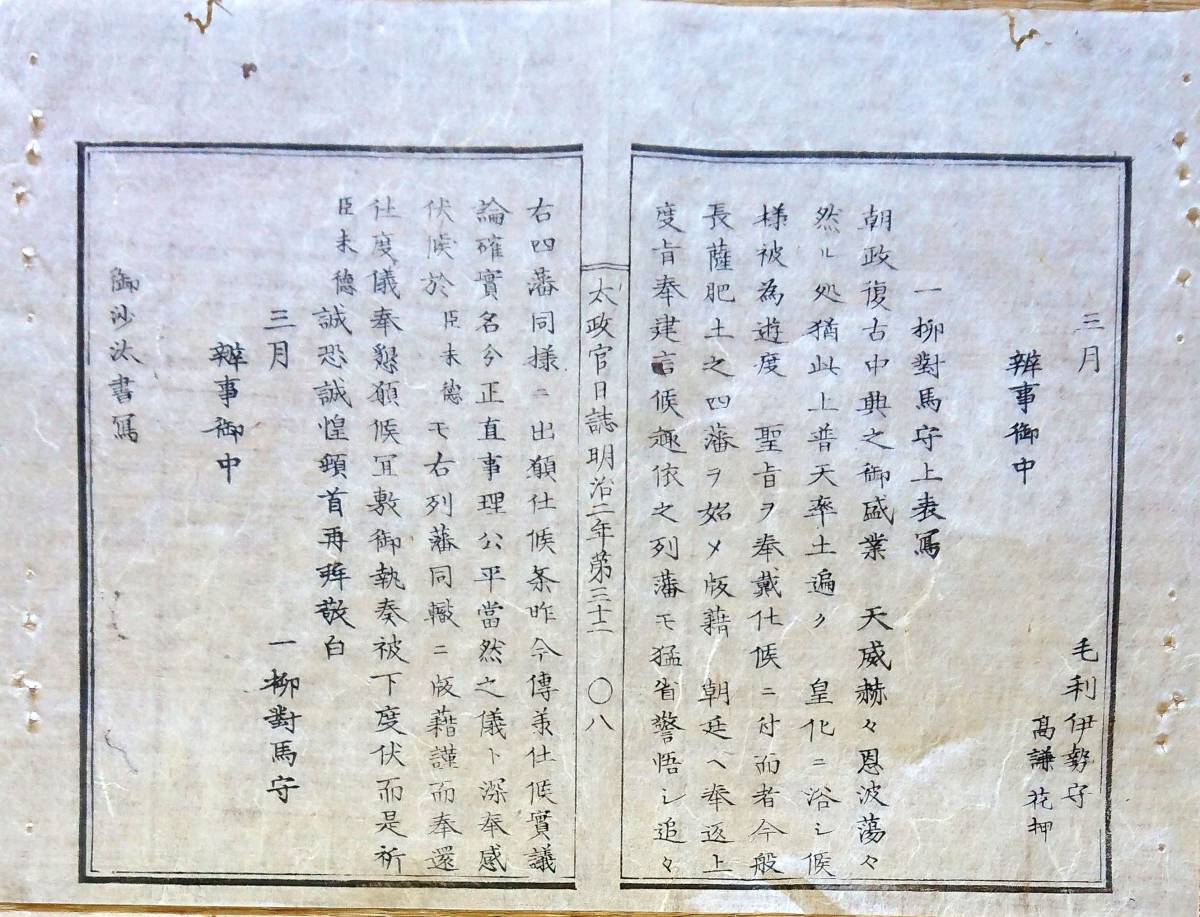 三月
毛利伊勢守
高謙花押
辨事御中
一柳對馬守上表寫
朝政復古中興之御盛業　天威赫々恩波蕩々
然ル処猶此上普天率土遍ク　皇化ニ浴シ候
様被為遊度　聖旨ヲ奉戴仕候ニ付而者今般
長薩肥土之四藩ヲ始メ版籍　朝廷ヘ奉返上
度旨奉建言候趣依之列藩モ猛省警悟シ追々
太政官日誌明治二年第三十二　〇八
右四藩同様ニ出願仕候条昨今傳承仕候實議
論確實名分正直事理公平當然之儀ト深奉感
伏候於臣末德モ右列藩同轍ニ版籍謹而奉還
仕度儀奉懇願候冝敷御執奏被下度伏而是祈
臣末德誠恐誠惶頓首再拜敬白
三月
一柳對馬守
辨事御中
御沙汰書寫